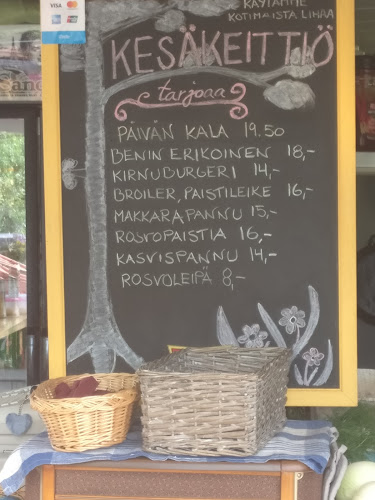 VISA
KÄYTÄMME
KOTIMAISTA LIHAA
KESÄKEITTIÖ
tarjoaa
PÄIVÄN KALA 19.50
BENIN ERIKOINEN 18,-
KIRNUBURGERI 14,-
BROILER, PAISTILEIKE 16,-
MAKKARAPANNU 15,-
ROSVOPAISTIA 16,-
KASVISPANNU 14,-
ROSVOLEIPÄ 8,-